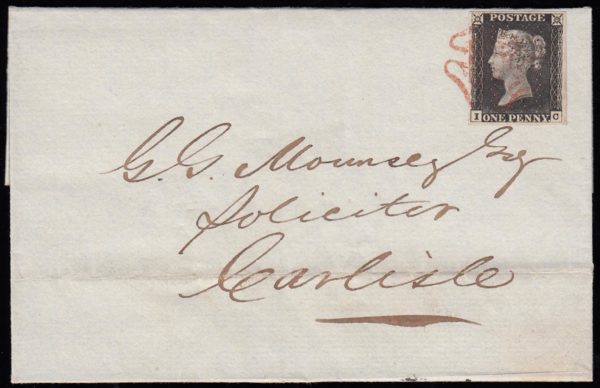 POSTAGE
I ONE PENNY C
G. G. Mounsey Esq
Soliciter
Carlisle